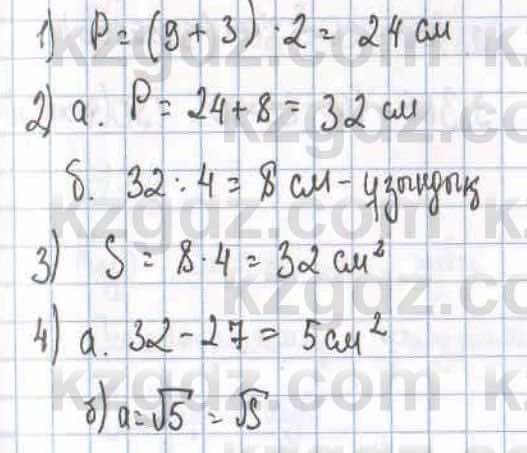 1) P = (9 + 3) · 2 = 24 см
2) а. P = 24 + 8 = 32 см
б. 32 : 4 = 8 см - ұзындық
3) S = 8 · 4 = 32 см²
4) а. 32 - 27 = 5 см²
б) a = √5 = √5
kzgdz.com